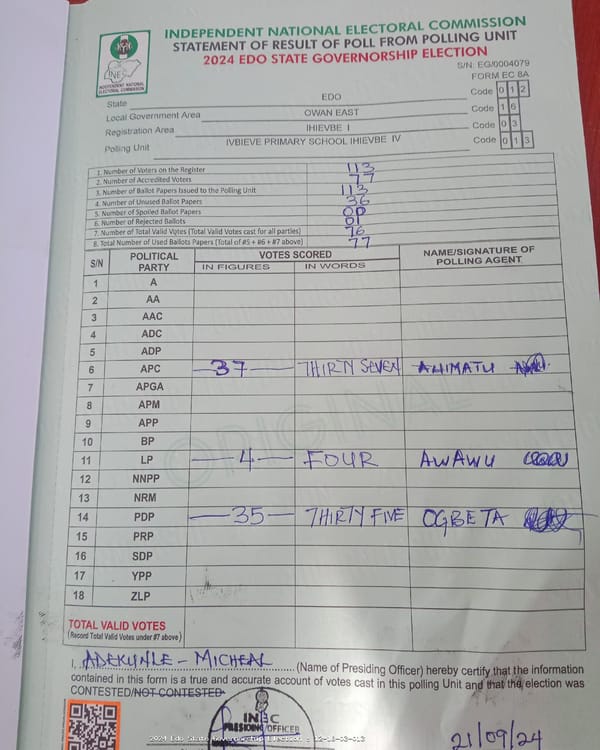 INDEPENDENT NATIONAL ELECTORAL COMMISSION
STATEMENT OF RESULT OF POLL FROM POLLING UNIT
2024 EDO STATE GOVERNORSHIP ELECTION
S/N: EG/0004079
FORM EC 8A
INEC
INDEPENDENT NATIONAL ELECTORAL COMMISSION
State EDO Code 0 1 2
Local Government Area OWAN EAST Code 1 6
Registration Area IHIEVBE I Code 0 3
Polling Unit IVBIEVE PRIMARY SCHOOL IHIEVBE IV Code 0 1 3
1. Number of Voters on the Register 113
2. Number of Accredited Voters 77
3. Number of Ballot Papers Issued to the Polling Unit 113
4. Number of Unused Ballot Papers 36
5. Number of Spoiled Ballot Papers
6. Number of Rejected Ballots
7. Number of Total Valid Votes (Total Valid Votes cast for all parties) 76
8. Total Number of Used Ballots Papers (Total of #5 + #6 + #7 above) 77
S/N POLITICAL PARTY VOTES SCORED NAME/SIGNATURE OF POLLING AGENT
IN FIGURES IN WORDS
1 A
2 AA
3 AAC
4 ADC
5 ADP
6 APC 37 THIRTY SEVEN AHIMATU
7 APGA
8 APM
9 APP
10 BP
11 LP 4 FOUR AWAWU
12 NNPP
13 NRM
14 PDP 35 THIRTY FIVE OGBETA
15 PRP
16 SDP
17 YPP
18 ZLP
ORIGINAL
TOTAL VALID VOTES
(Record Total Valid Votes under #7 above)
I, ADEKUNLE - MICHEAL (Name of Presiding Officer) hereby certify that the information
contained in this form is a true and accurate account of votes cast in this polling Unit and that the election was
CONTESTED/NOT CONTESTED
INEC
PRESIDING OFFICER
2024 Edo State Governorship Election - 12-16-03-013
21/09/24